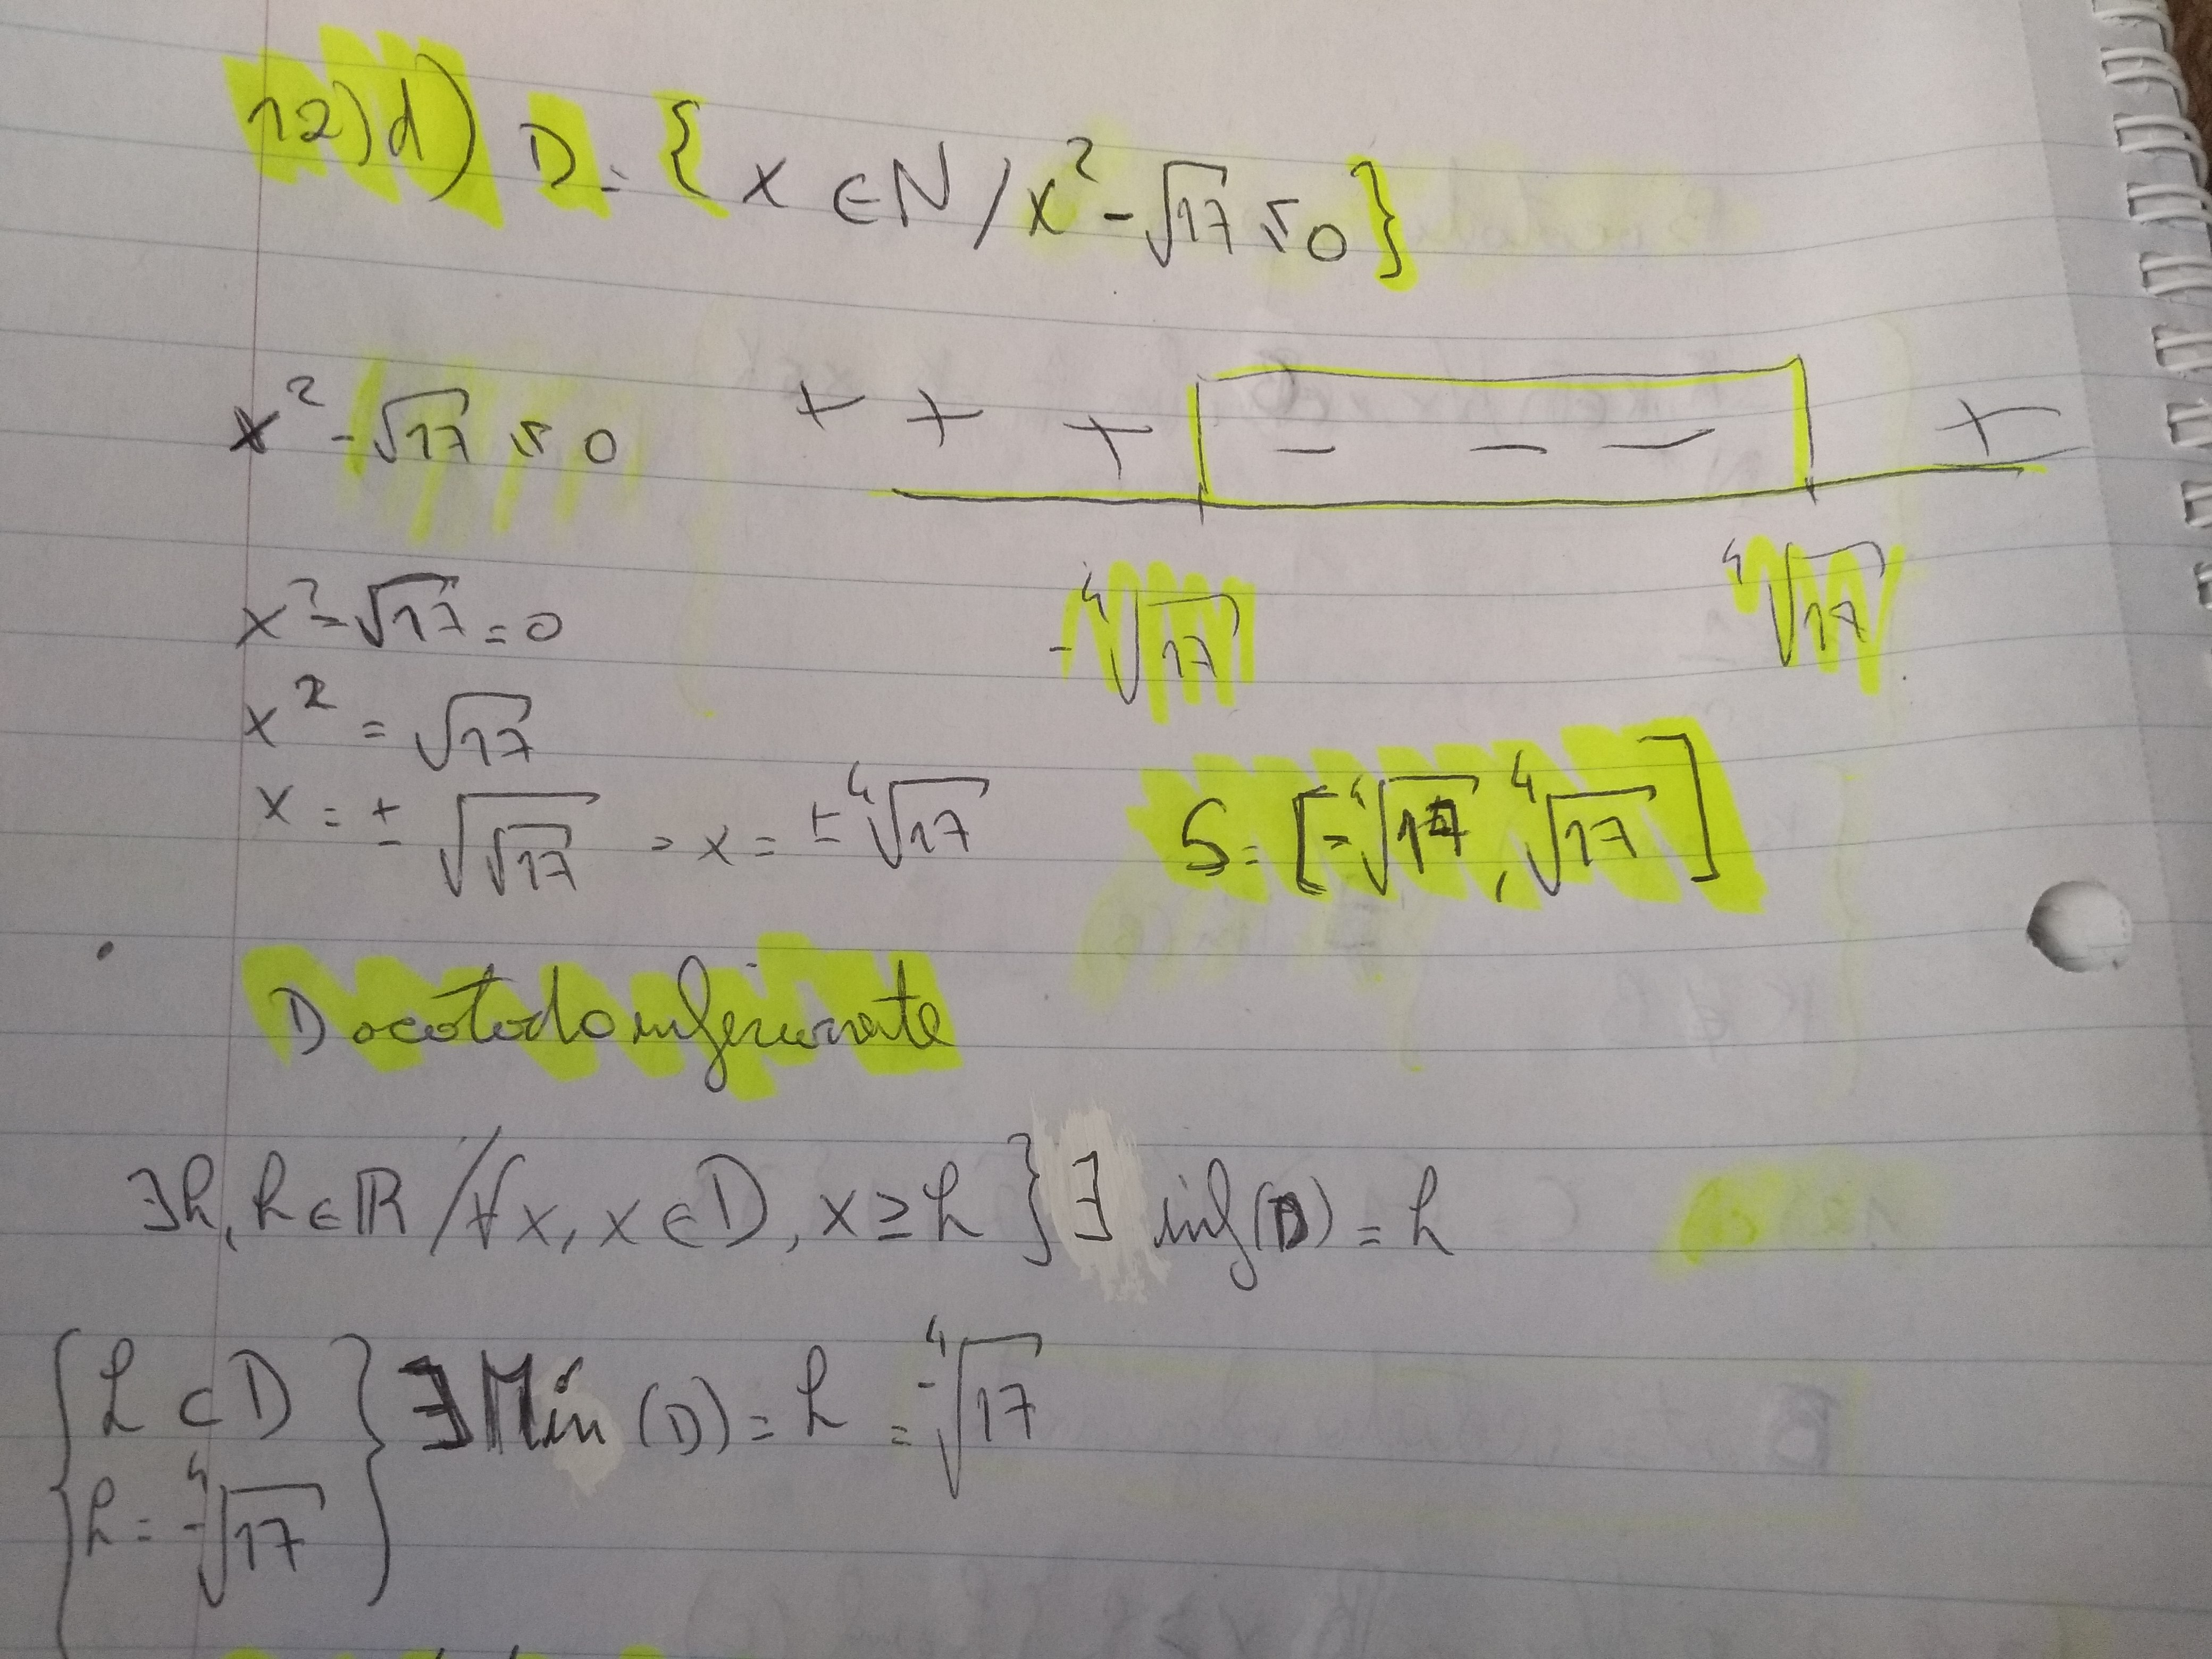 12)d) D = { x ∈ N / x² - √17 ≤ 0 }
x² - √17 ≤ 0
+ + + - - - +
-⁴√17 ⁴√17
x² - √17 = 0
x² = √17
x = ± √√17 = x = ± ⁴√17
S = [-⁴√17, ⁴√17]
D acotado inferiormente
∃h, h ∈ ℝ / ∀x, x ∈ D, x ≥ h } ∃ inf(D) = h
{ h ⊂ D } ∃ Mín (D) = h = -⁴√17
h = -⁴√17